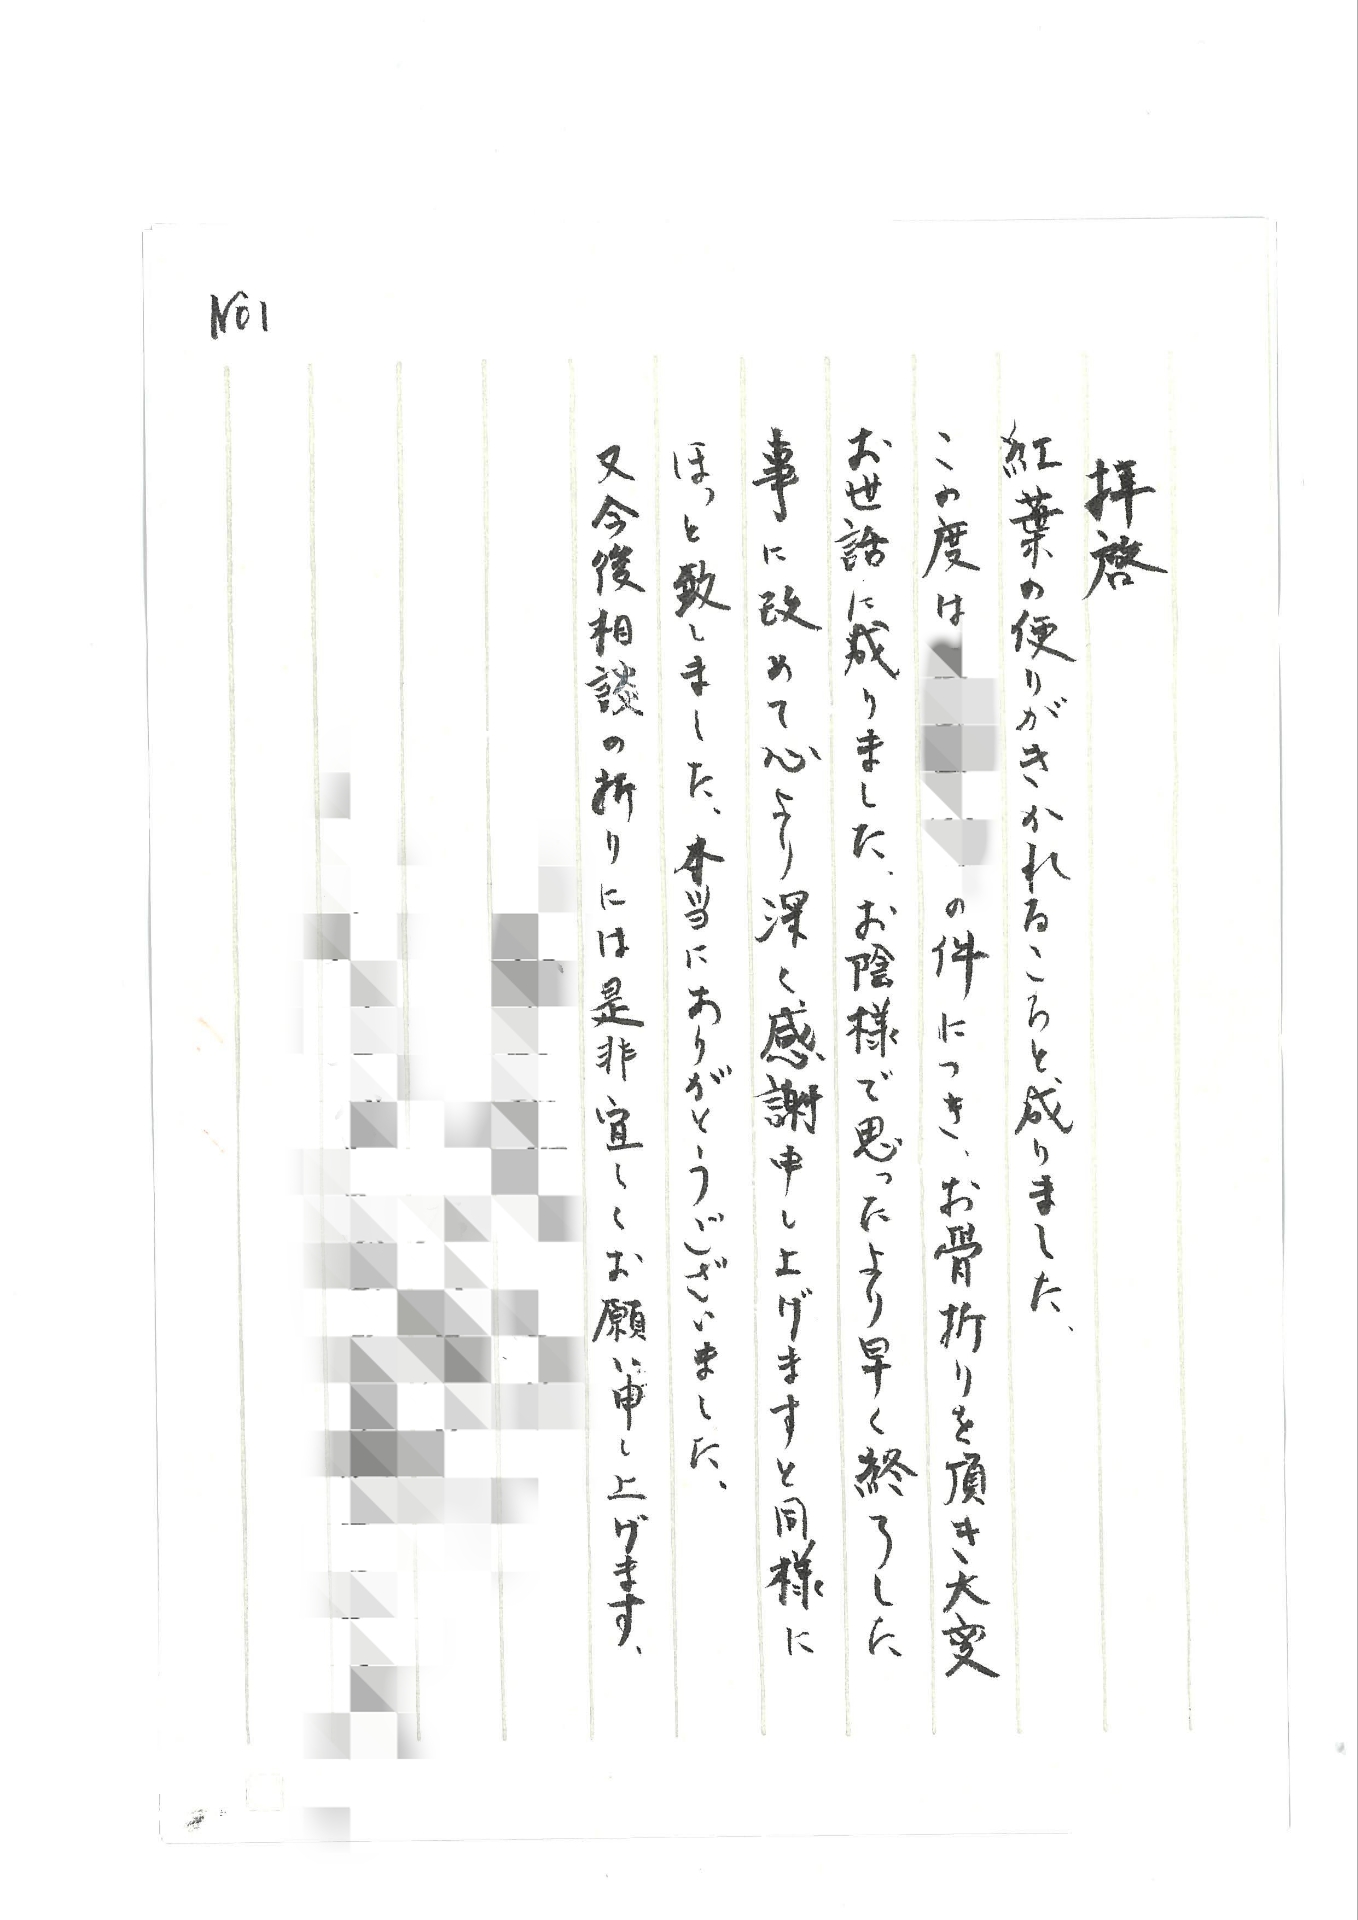 No1
拝啓
紅葉の便りがきかれるころと成りました、
この度は の件につき、お骨折りを頂き大変
お世話に成りました、お陰様で思ったより早く終了した
事に改めて心より深く感謝申し上げますと同様に
ほっと致しました、本当にありがとうございました、
又今後相談の折りには是非宜しくお願い申し上げます、